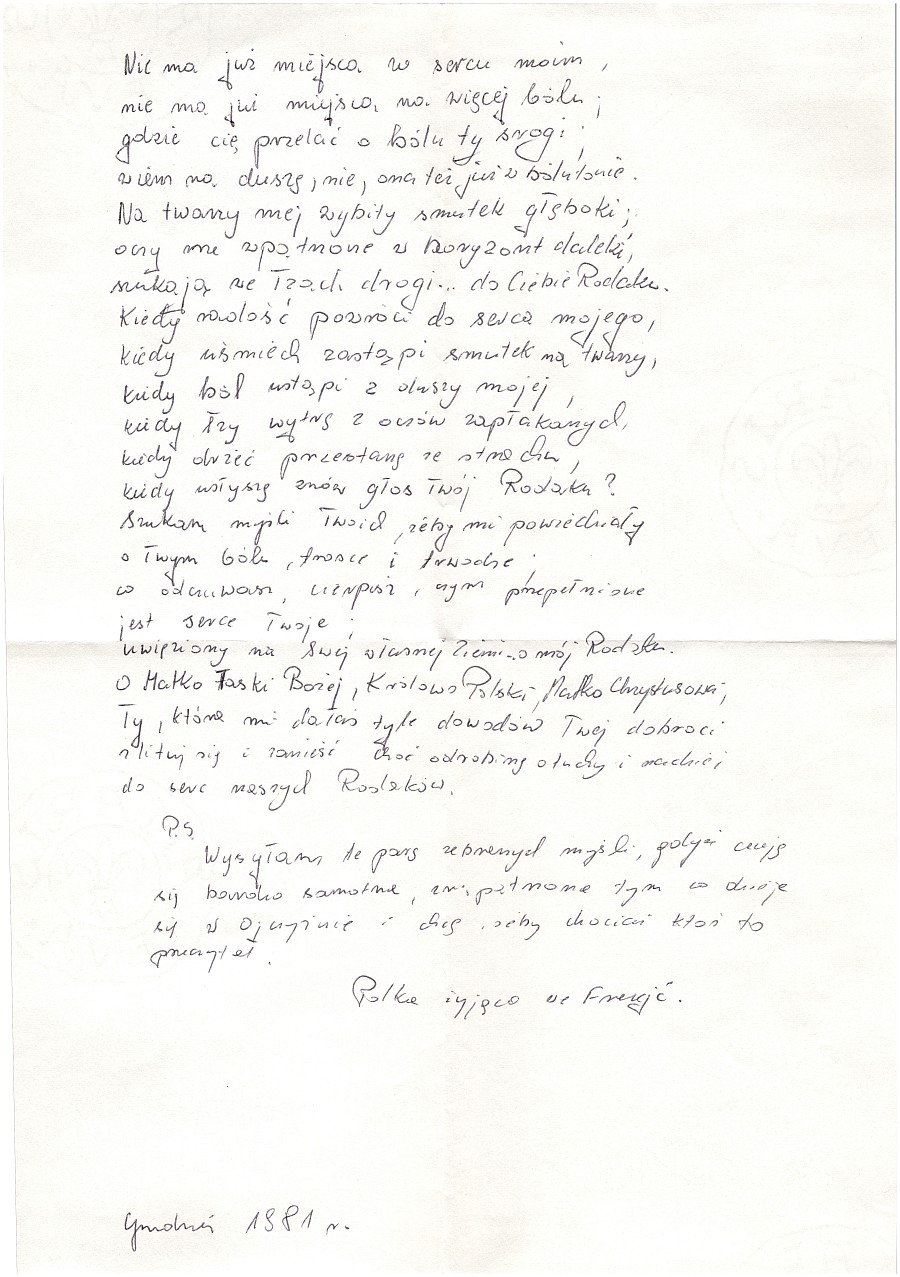 Nie ma już miejsca w sercu moim,
nie ma już miejsca na więcej bólu;
gdzie cię przelać o bólu ty srogi;
wiem na duszę, nie, ona też już w bólu tonie.
Na twarzy mej wybity smutek głęboki;
oczy me wpatrzone w horyzont daleki,
szukają we łzach drogi... do Ciebie Rodaku.
Kiedy radość powróci do serca mojego,
kiedy uśmiech zastąpi smutek na twarzy,
kiedy ból ustąpi z duszy mojej,
kiedy łzy wytrę z oczów zapłakanych,
kiedy drżeć przestanę ze strachu,
kiedy usłyszę znów głos Twój Rodaku?
Szukam myśli Twoich, żeby mi powiedziały
o Twym bólu, trosce i trwodze;
co odczuwasz, cierpisz i czym przepełnione
jest serce Twoje;
uwięziony na Swej własnej Ziemi... o mój Rodaku.
O Matko Łaski Bożej, Królowo Polski, Matko Chrystusowa,
Ty, która mi dałaś tyle dowodów Twej dobroci
zlituj się i zanieść choć odrobinę otuchy i nadziei
do serc naszych Rodaków.
P.S.
Wysyłam te parę zebranych myśli, gdyż czuję
się bardzo samotna, tym co dzieje
się w Ojczyźnie i chcę, żeby chociaż ktoś to
przeczytał.
Polka żyjąca we Francji.
Grudzień 1981 r.